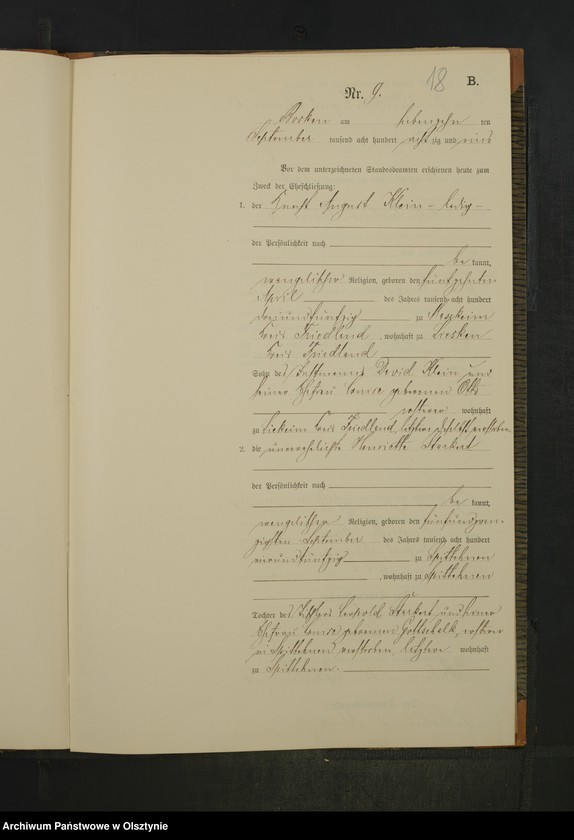 18
B.
Nr. 9.
Rosken am siebenzehn ten
September tausend acht hundert achtzig und eins
Vor dem unterzeichneten Standesbeamten erschienen heute zum
Zweck der Eheschließung:
1. der Knecht August Klein – ledig –
der Persönlichkeit nach
be kannt,
evangelischer Religion, geboren den fünfzehnten
April des Jahres tausend acht hundert
dreiundfünfzig zu
Kreis Friedland, wohnhaft zu Liesken
Kreis Friedland
Sohn des Instmanns David Klein und
seiner Ehefrau Louise geborenen
ersterer wohnhaft
zu Liekeim Kreis Friedland, letztere verstorben
2. die unverehelichte Henriette Sterkert
der Persönlichkeit nach
be kannt,
evangelischer Religion, geboren den fünfundzwan-
zigsten September des Jahres tausend acht hundert
vierundfünfzig zu Spittehnen
, wohnhaft zu Spittehnen
Tochter des Leopold Sterkert und seiner
Ehefrau Louise geborenen Gottschalk, ersterer
in Spittehnen verstorben, letztere wohnhaft
zu Spittehnen.
Archiwum Państwowe w Olsztynie